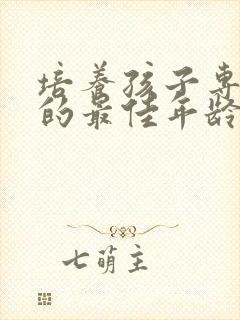 培养孩子专
的最佳年龄
七萌主